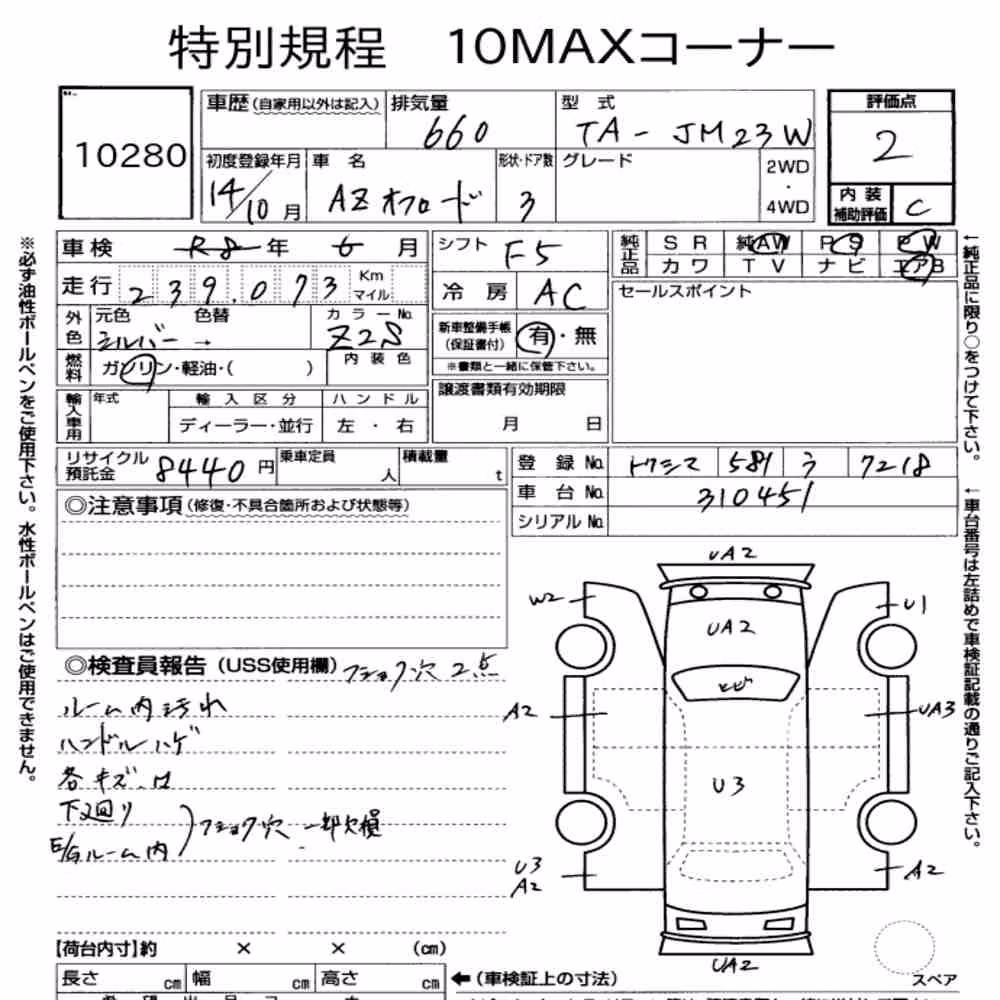 特別規程 10MAXコーナー
10280
車歴 (自家用以外は記入)
排気量
660
型式
TA-JM23W
評価点
2
初度登録年月
14/10月
車名
AZオフロード
形状・ドア数
3
グレード
2WD
・
4WD
内装補助評価
C
車検 R8年 6月
シフト F5
純正品
SR 純AW PS PW
カワ TV ナビ エアB
走行 239.073 Km マイル
冷房 AC
セールスポイント
外色
元色 色替
シルバー →
カラーNo.
Z2S
新車整備手帳 (保証書付) 有・無
※書類と一緒に保管下さい。
燃料 ガソリン・軽油・( )
内装色
譲渡書類有効期限
月 日
輸入車用
年式
輸入区分
ハンドル
ディーラー・並行
左・右
リサイクル預託金 8440円
乗車定員 人
積載量 t
登録No. トクシマ 581 う 7218
車台No. 310451
シリアルNo.
◎注意事項 (修復・不具合箇所および状態等)
◎検査員報告 (USS使用欄) フショク穴 2点
ルーム内汚れ
ハンドルハゲ
各キズ、凹
下廻り
E/Gルーム内
フショク穴 一部欠損
UA2
W2
U1
UA2
ヒビ
A2
UA3
U3
U3
A2
A2
UA2
スペア
【荷台内寸】約 × × (cm)
長さ cm 幅 cm 高さ cm
←(車検証上の寸法)
※必ず油性ボールペンをご使用下さい。水性ボールペンはご使用できません。
←純正品に限り○をつけて下さい。
←車台番号は左詰めで車検証記載の通りご記入下さい。